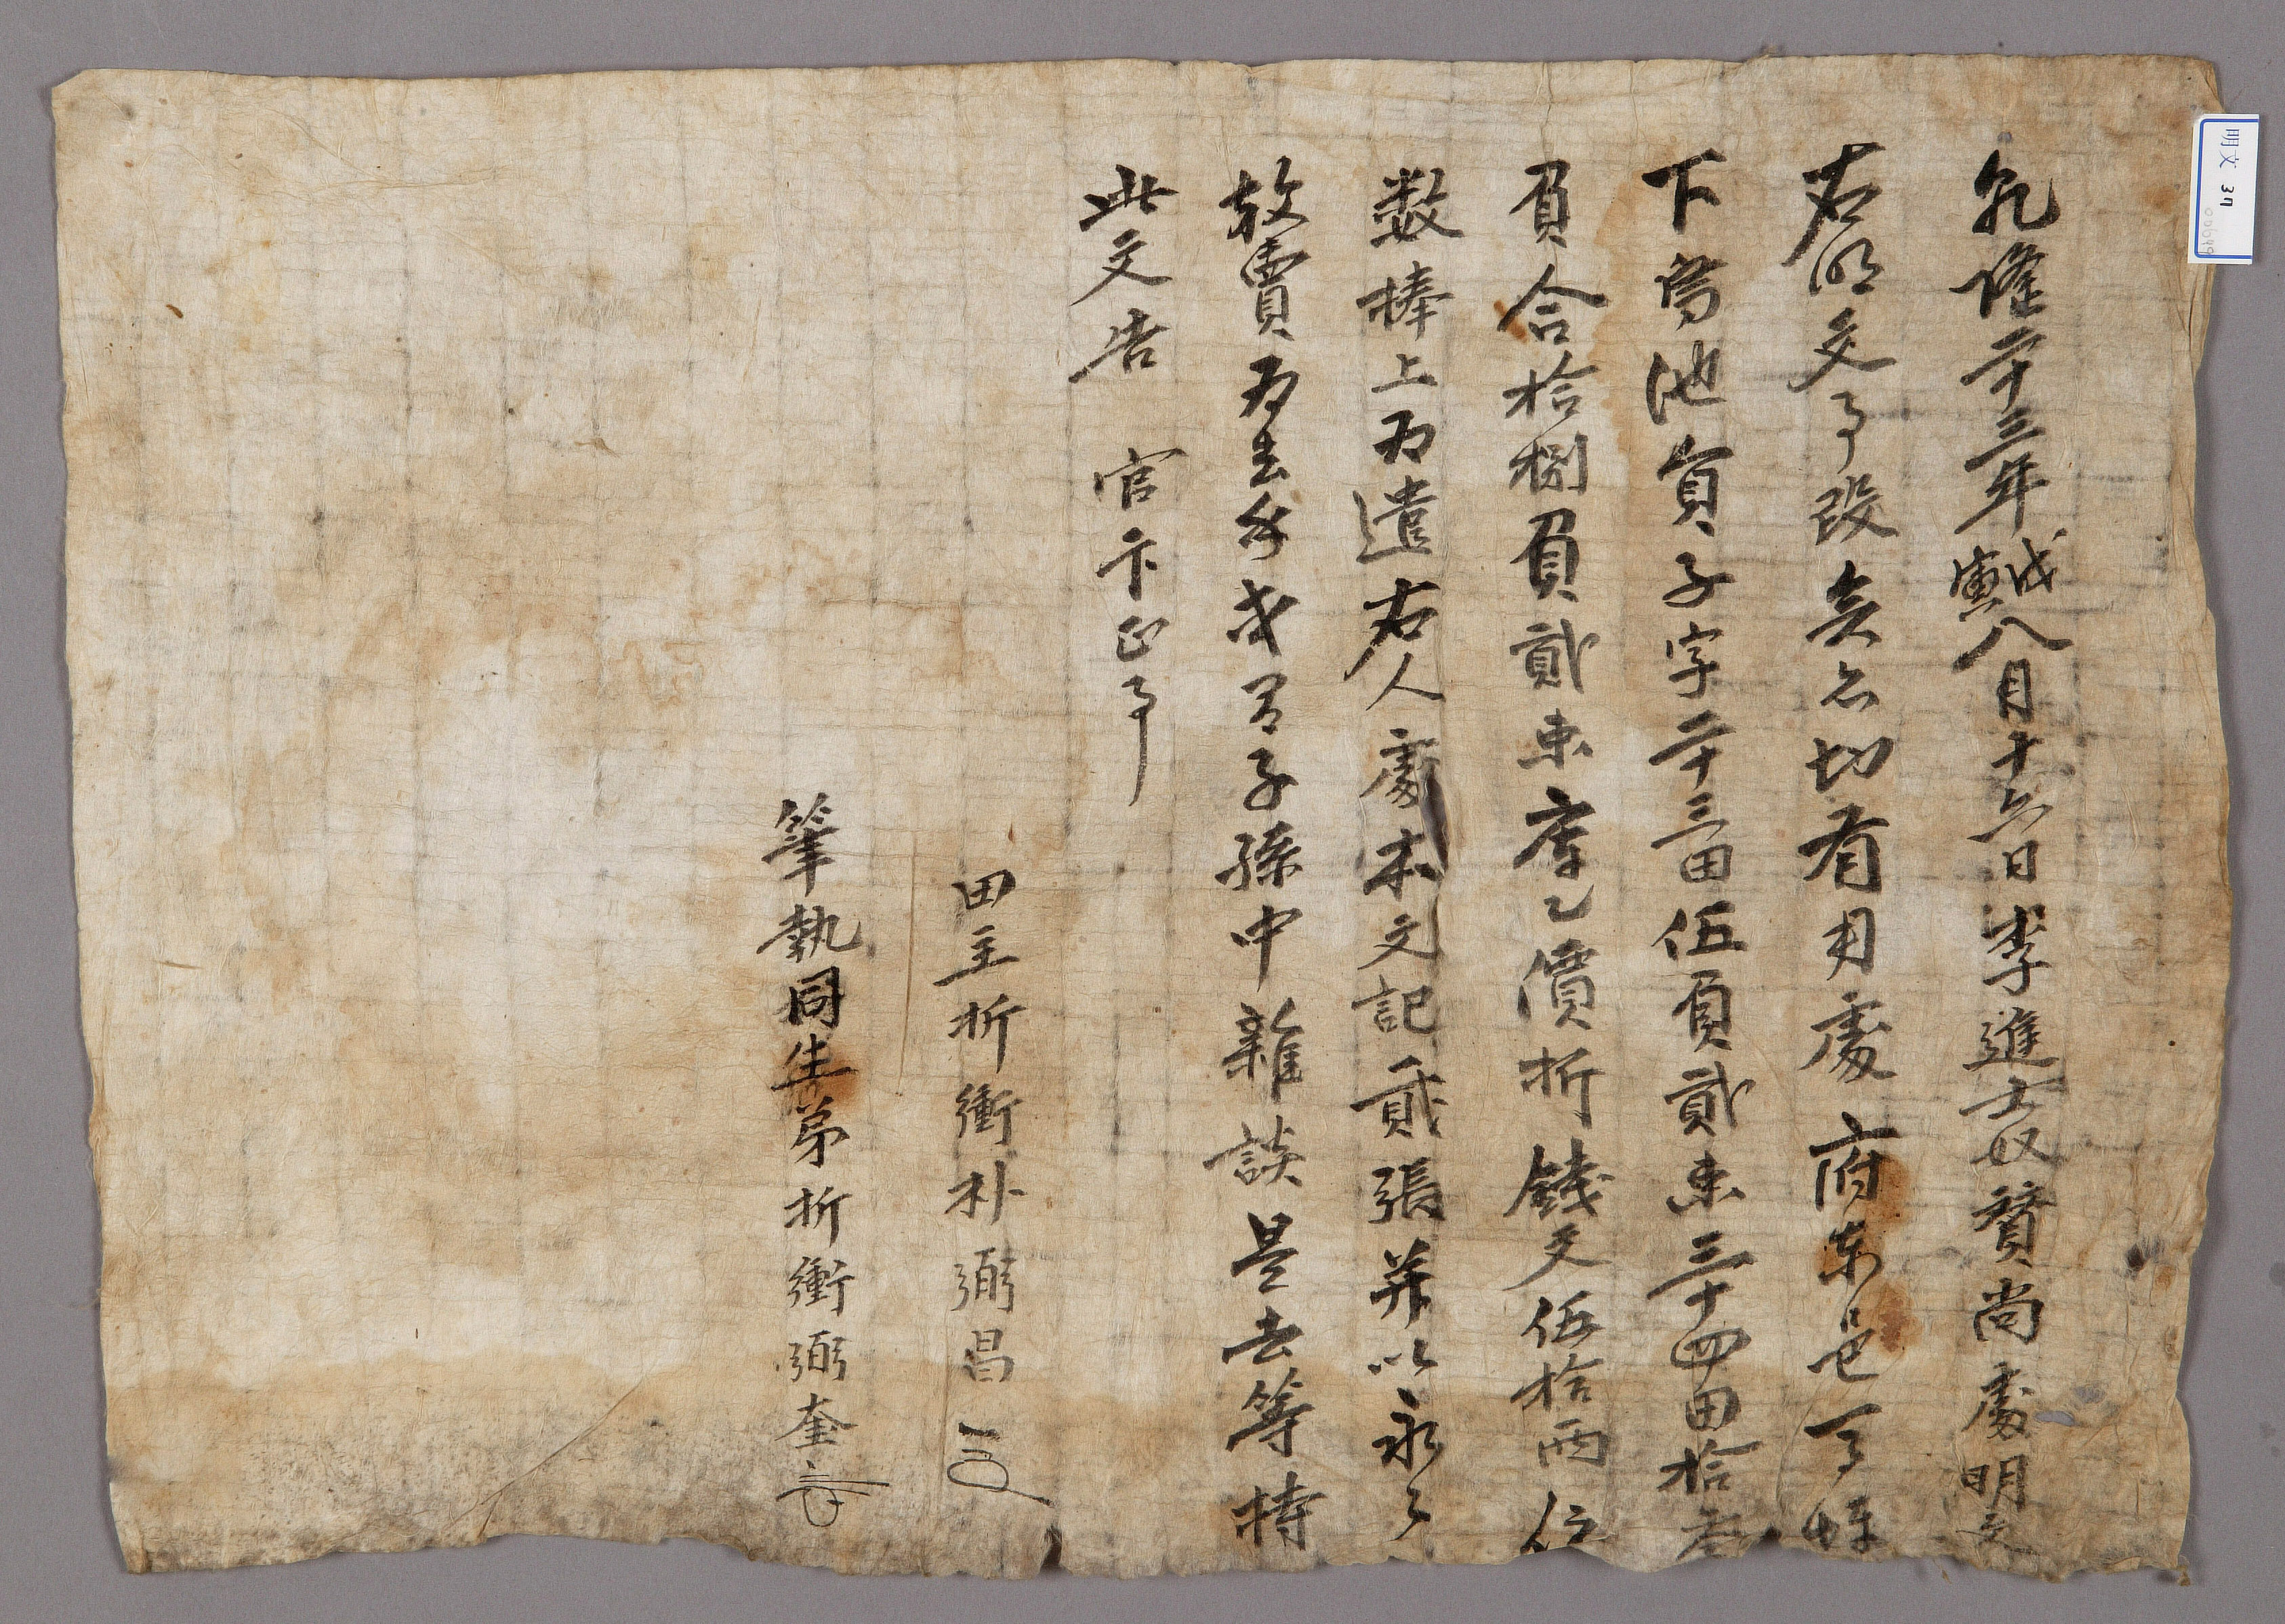 乹隆二十三年戊寅八月十六日李進士奴贊尚處明文
右明文事段矣亦切有用處府東邑內坪
下常池員子字二十三田伍負貳束三十四田拾叁
負合拾捌負貳束庫乙價折錢文伍拾兩依
数捧上為遣右人處本文記貳張幷以永々
放賣為去乎後或有子孫中雜談是去等持
此文告官卞正事
田主折衝朴弼昌
筆執同生弟折衝弼奎
明文 39